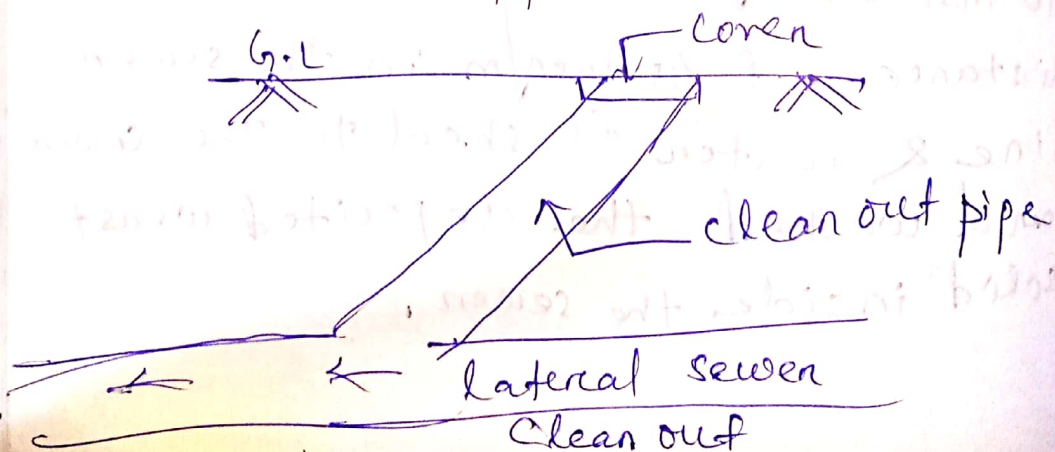 G.L
Cover
clean out pipe
lateral sewer
Clean out